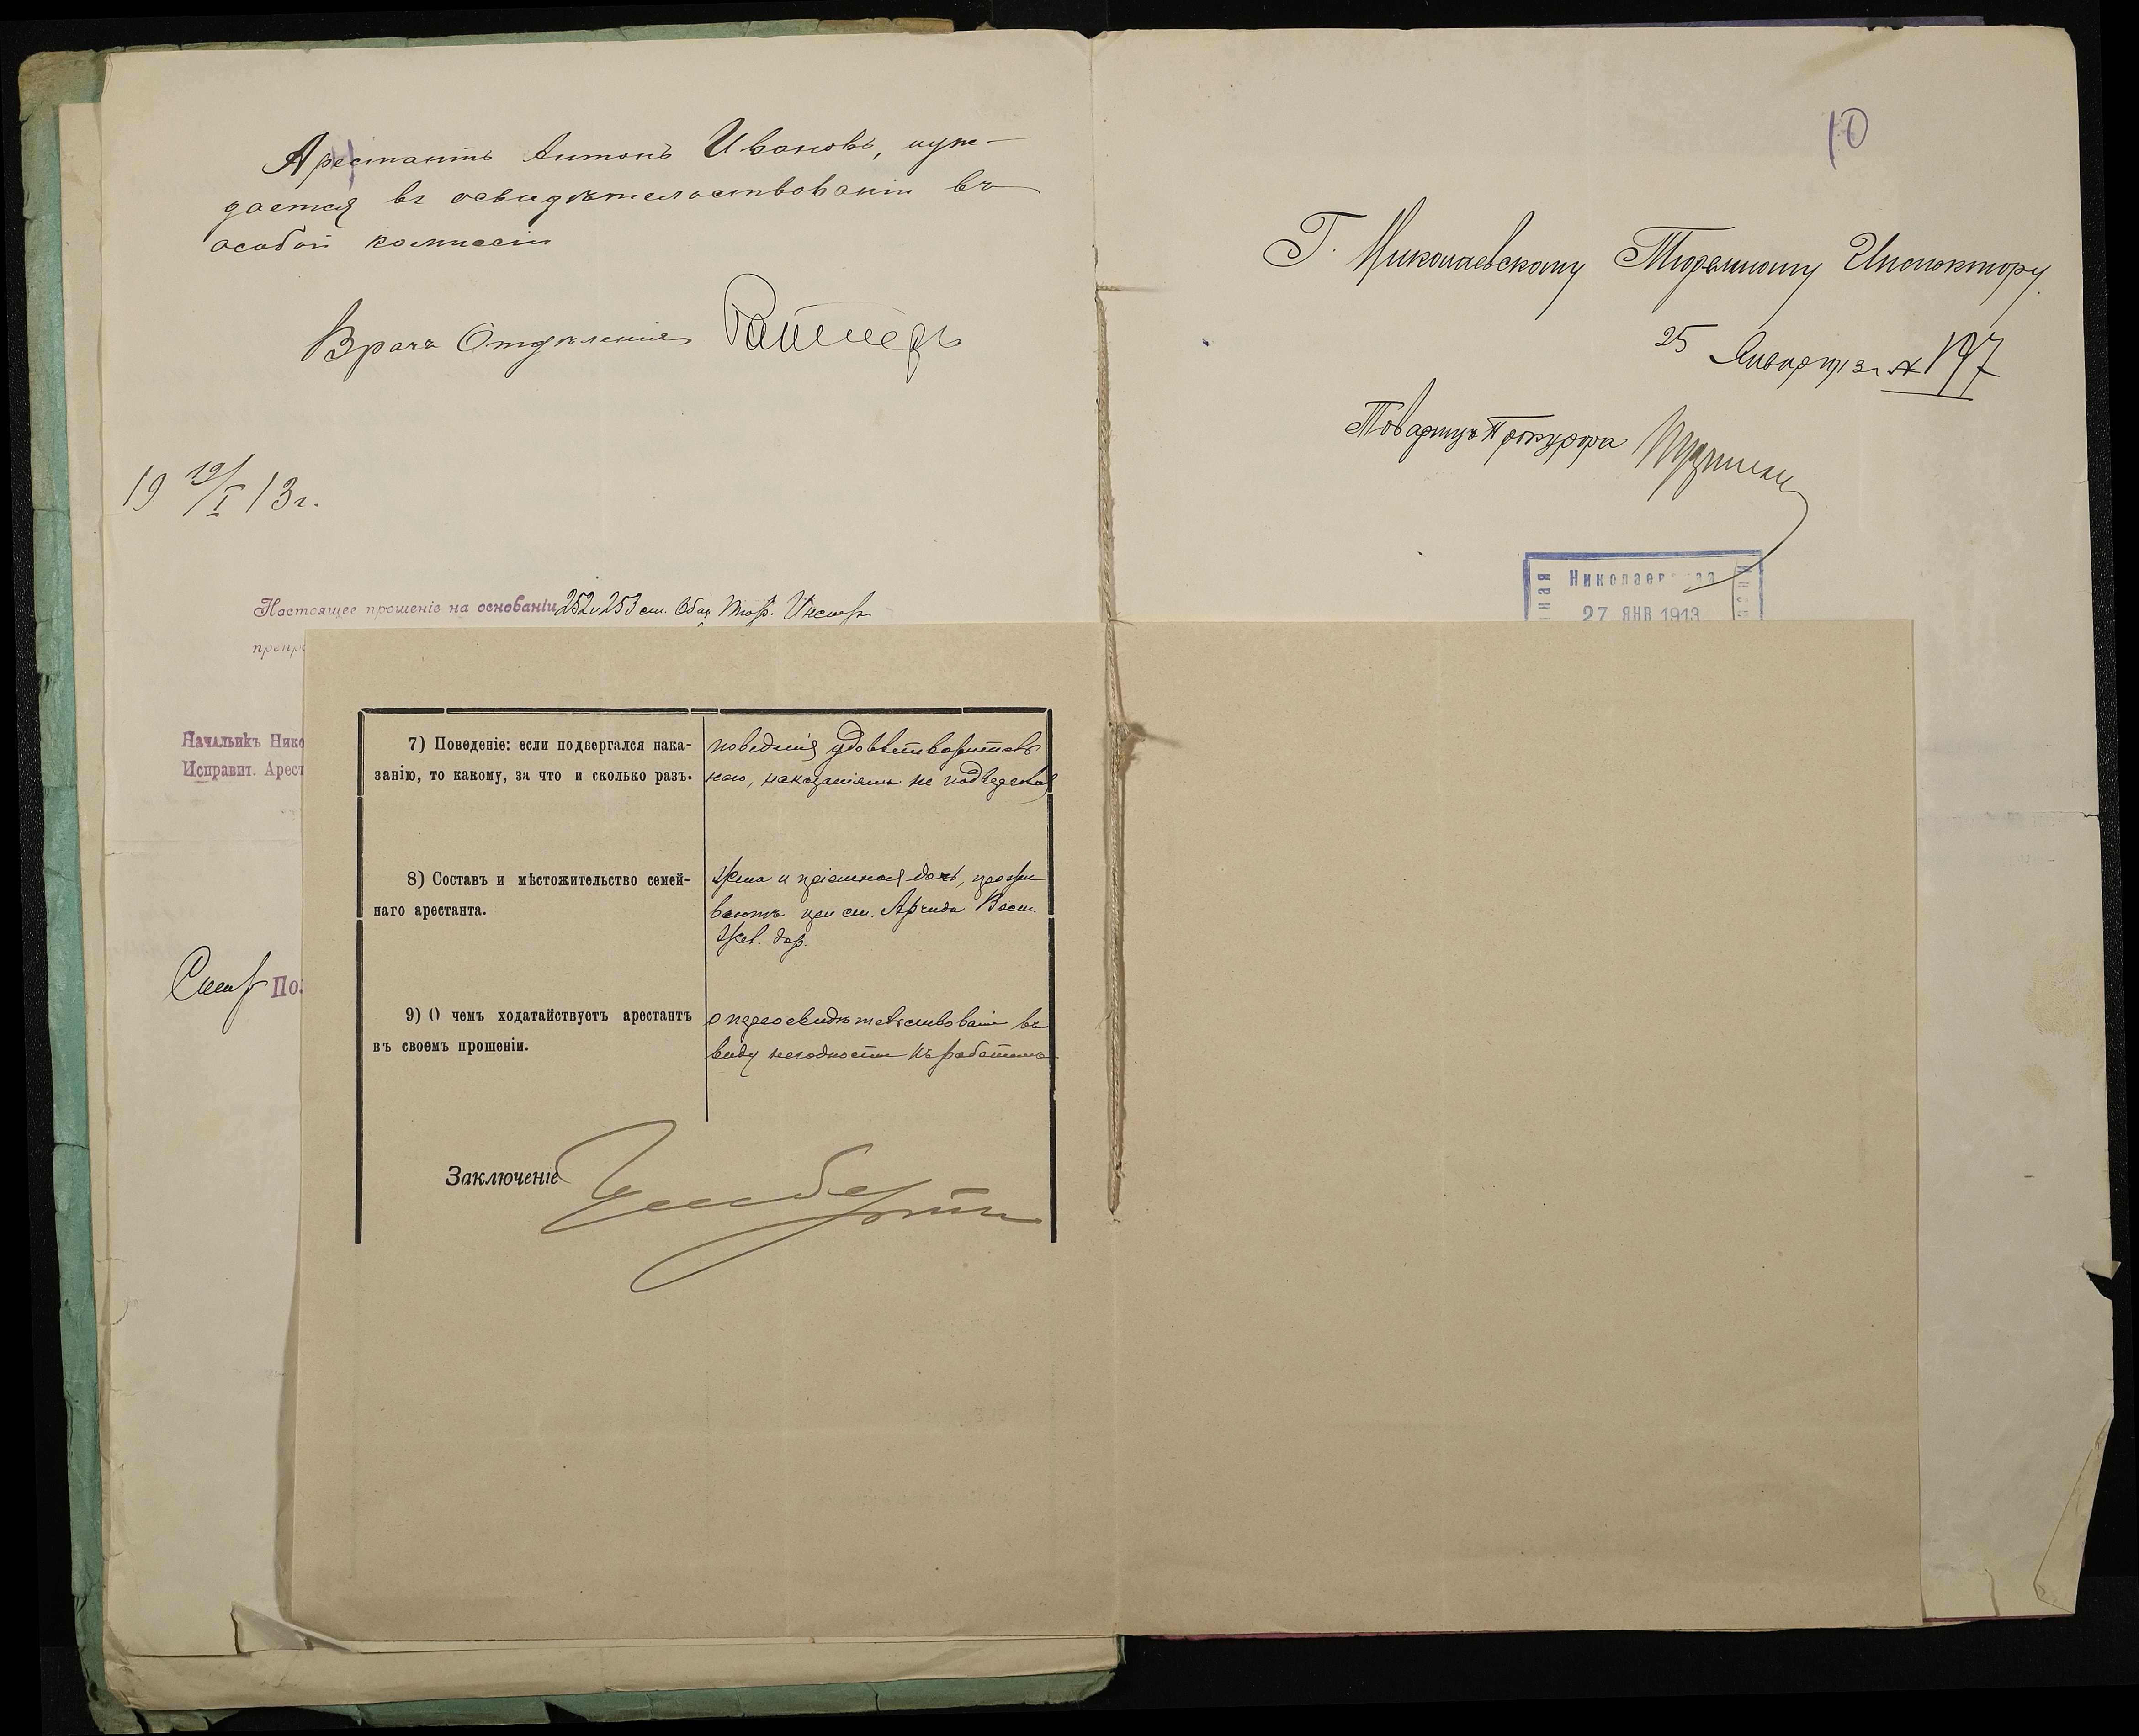 Арестантъ Антонъ Ивановъ, нуж-
дается въ освидѣтельствованіи въ
особой комиссіи
Врачъ Отдѣленія
19 19/I 13 г.
Настоящее прошеніе на основаніи 252 и 253 ст. Общ. Тюр. Инстр.
Начальникъ Нико
Исправит. Арест
По
7) Поведеніе: если подвергался нака-
занію, то какому, за что и сколько разъ.
поведенія удовлетворитель
наго, наказаніямъ не подвергался
8) Составъ и мѣстожительство семей-
наго арестанта.
Жена и пріемная дочь, прожи
ваютъ при ст. Арчида Вост.
Жел. дор.
9) О чемъ ходатайствуетъ арестантъ
въ своемъ прошеніи.
о переосвидѣтельствованіи въ
виду негодности къ работамъ
Заключеніе
10
Г. Николаевскому Тюремному Инспектору.
25 Января 13 г. № 197
Товарищъ Прокурора
Николаевская
27 ЯНВ 1913